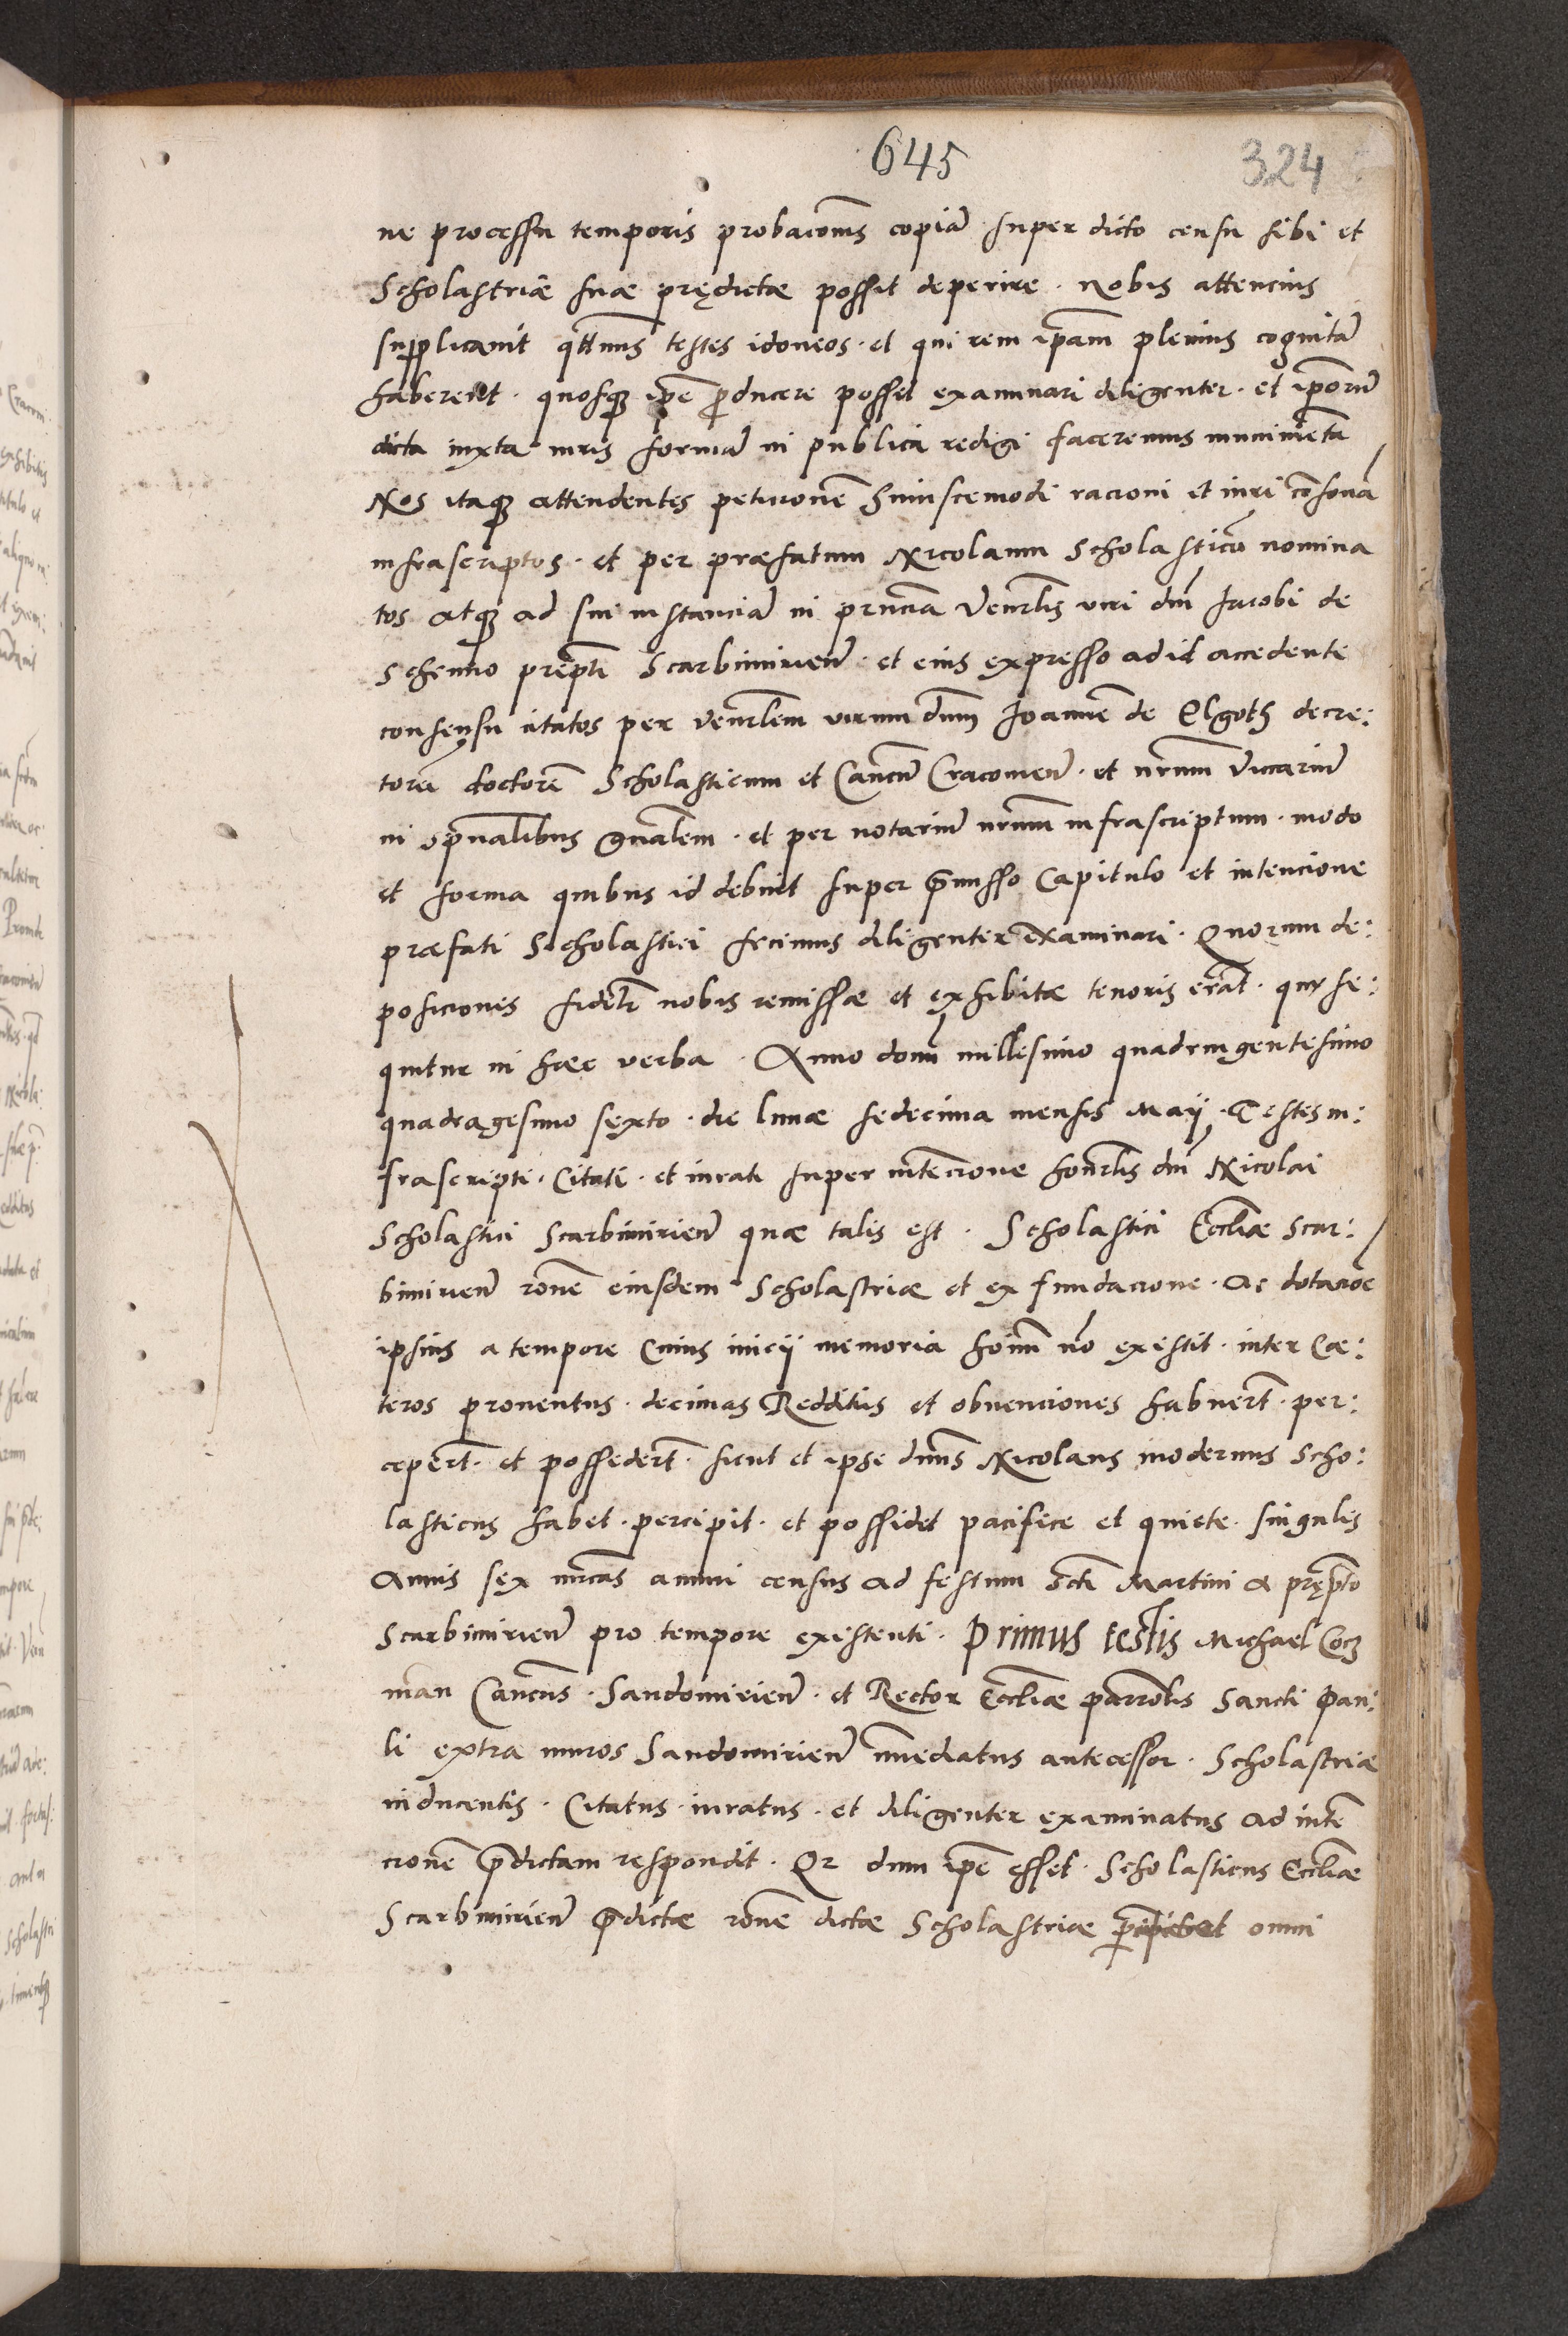 645
324
ne processu temporis probacōnis copiā super dicto censu sibi et
Scholastriæ suæ prędictæ possit deperire. Nobis attencius
supplicavit q̄tenus testes idoneos. et qui rem ip̄am plenius cognitā
haberent. quosq; ip̄e producere posset examinari diligenter. et ip̄orū
dicta iuxta iuris formā in publica redigi faceremus munimēta
Nos itaq; attendentes peticionē huiuscemodi racioni et iuri cōsonā
infrascriptos. et per præfatum Nicolaum Scholasticū nomina
tos atq; ad sui instanciā in pr̄ncia Ven̄rlis viri dn̄i Jacobi de
Schenno prēpti Scarbimirieñ. et eius expresso ad id accedente
consensu citatos per ven̄rlem virum dn̄m Joannē de Elgoth decre:
torū doctorē Scholasticum et Can̄cum Cracovieñ. et n̄rum Vicariū
in sp̄ualibus gn̄alem. et per notariū n̄rum infrascriptum. modo
et forma quibus id debuit super p̄misso Capitulo et intencione
præfati Scholastici fecimus diligenter examinari. Quorum de:
posiciones fidelr̄ nobis remissæ et exhibitæ tenoris erāt. qui se:
quitur in hæc verba. Anno domi millesimo quadringentesimo
quadragesimo sexto. die lunæ sedecima mensis Maij. Testes in:
frascripti. Citati. et iurati super intencione hon̄rlis dn̄i Nicolai
Scholastici Scarbimirieñ quæ talis est. Scholastici Eccl̄iæ Scar:
bimirieñ rōne eiusdem Scholastriæ et ex fundacione. ac dotacōe
ipsius a tempore cuius inicij memoria hoīm nō existit. inter Cæ:
teros proventus. decimas Redditus et obvenciones habuert̄. per:
cepert̄. et possedert̄. sicut et ipse dn̄us Nicolaus modernus Scho:
lasticus habet. percipit. et possidet pacifice et quiete. singulis
Annis sex mr̄cas annui census ad festum sc̄ti Martini a pręp̄to
Scarbimirieñ pro tempore existenti. Primus testis Michael Cocz
man Can̄cus. Sandomirieñ. et Rector Eccl̄iæ parrōlis Sancti Pau:
li extra muros Sandomirieñ īmediatus antecessor. Scholastriæ
inducentis. Citatus. iuratus. et diligenter examinatus ad intē
cionē p̄dictam respondit. Qz dum ip̄e esset. Scholasticus Eccl̄iæ
Scarbimirieñ p̄dictæ rōne dictæ Scholastriæ omni